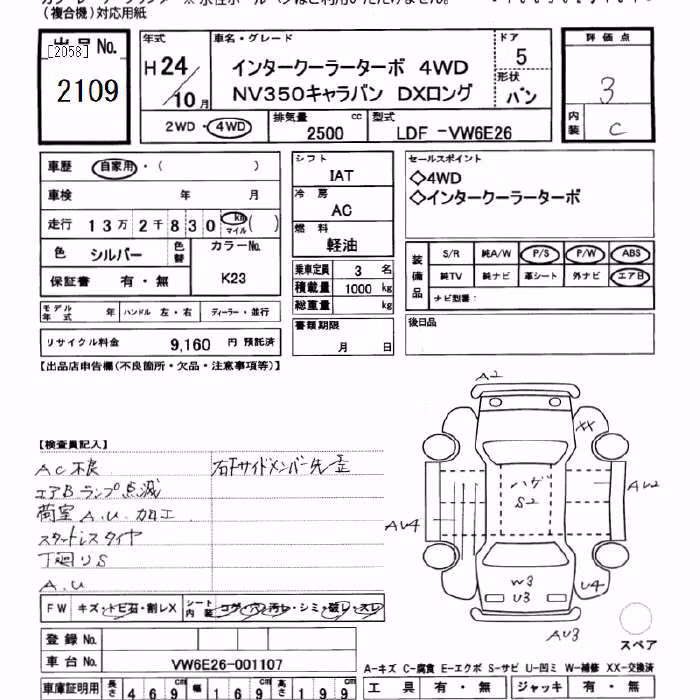 (複合機)対応用紙
出品No.
[2058]
2109
年式
H24/10月
車名・グレード
インタークーラーターボ 4WD
NV350キャラバン DXロング
ドア
5
形状
バン
評価点
3
内装
C
2WD・4WD
排気量
2500 cc
型式
LDF -VW6E26
車歴 自家用・( )
車検 年 月
走行 13万2千830 km マイル ( )
色 シルバー 色替
カラーNo.
K23
保証書 有・無
シフト
IAT
冷房
AC
燃料
軽油
乗車定員 3 名
積載量 1000 kg
総重量 kg
セールスポイント
◇4WD
◇インタークーラーターボ
装備品
S/R 純A/W P/S P/W ABS
純TV 純ナビ 革シート 外ナビ エアB
ナビ型番:
モデル年式 年 ハンドル 左・右 ディーラー・並行
リサイクル料金 9,160 円 預託済
書類期限
月 日
後日品
【出品店申告欄(不良箇所・欠品・注意事項等)】
【検査員記入】
AC不良
エアBランプ点滅
荷室A.U.加工
スタートレスタイヤ
下廻りS
A.U
右Fサイドメンバー先歪
A2
XX
ハゲ
S2
AU2
AU4
W3
U3
U4
AU3
スペア
FW キズ・トビ石・割レX シート内装 コゲ・穴・汚レ・シミ・破レ・スレ
登録No.
車台No. VW6E26-001107
A-キズ C-腐食 E-エクボ S-サビ U-凹ミ W-補修 XX-交換済
車庫証明用 長さ 469 cm 幅 169 cm 高さ 199 cm
工具 有・無 ジャッキ 有・無